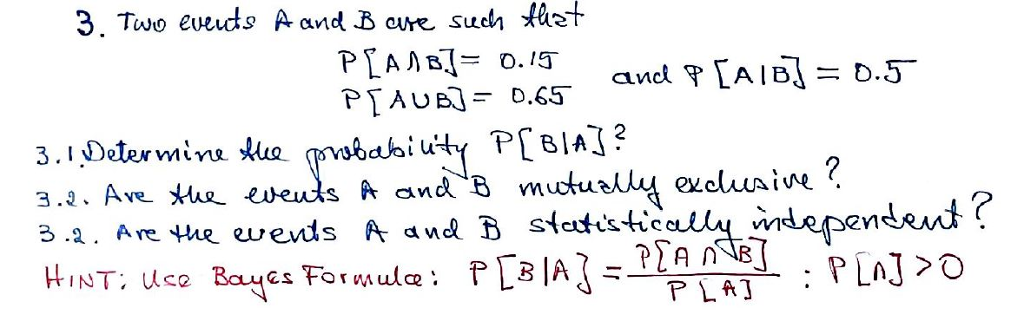 3. Two events A and B are such that
P[A∩B] = 0.15
P[A∪B] = 0.65
and P[A|B] = 0.5
3.1. Determine the probability P[B|A]?
3.2. Are the events A and B mutually exclusive?
3.2. Are the events A and B statistically independent?
HINT: Use Bayes Formula: P[B|A] = P[A∩B] / P[A] : P[A] > 0